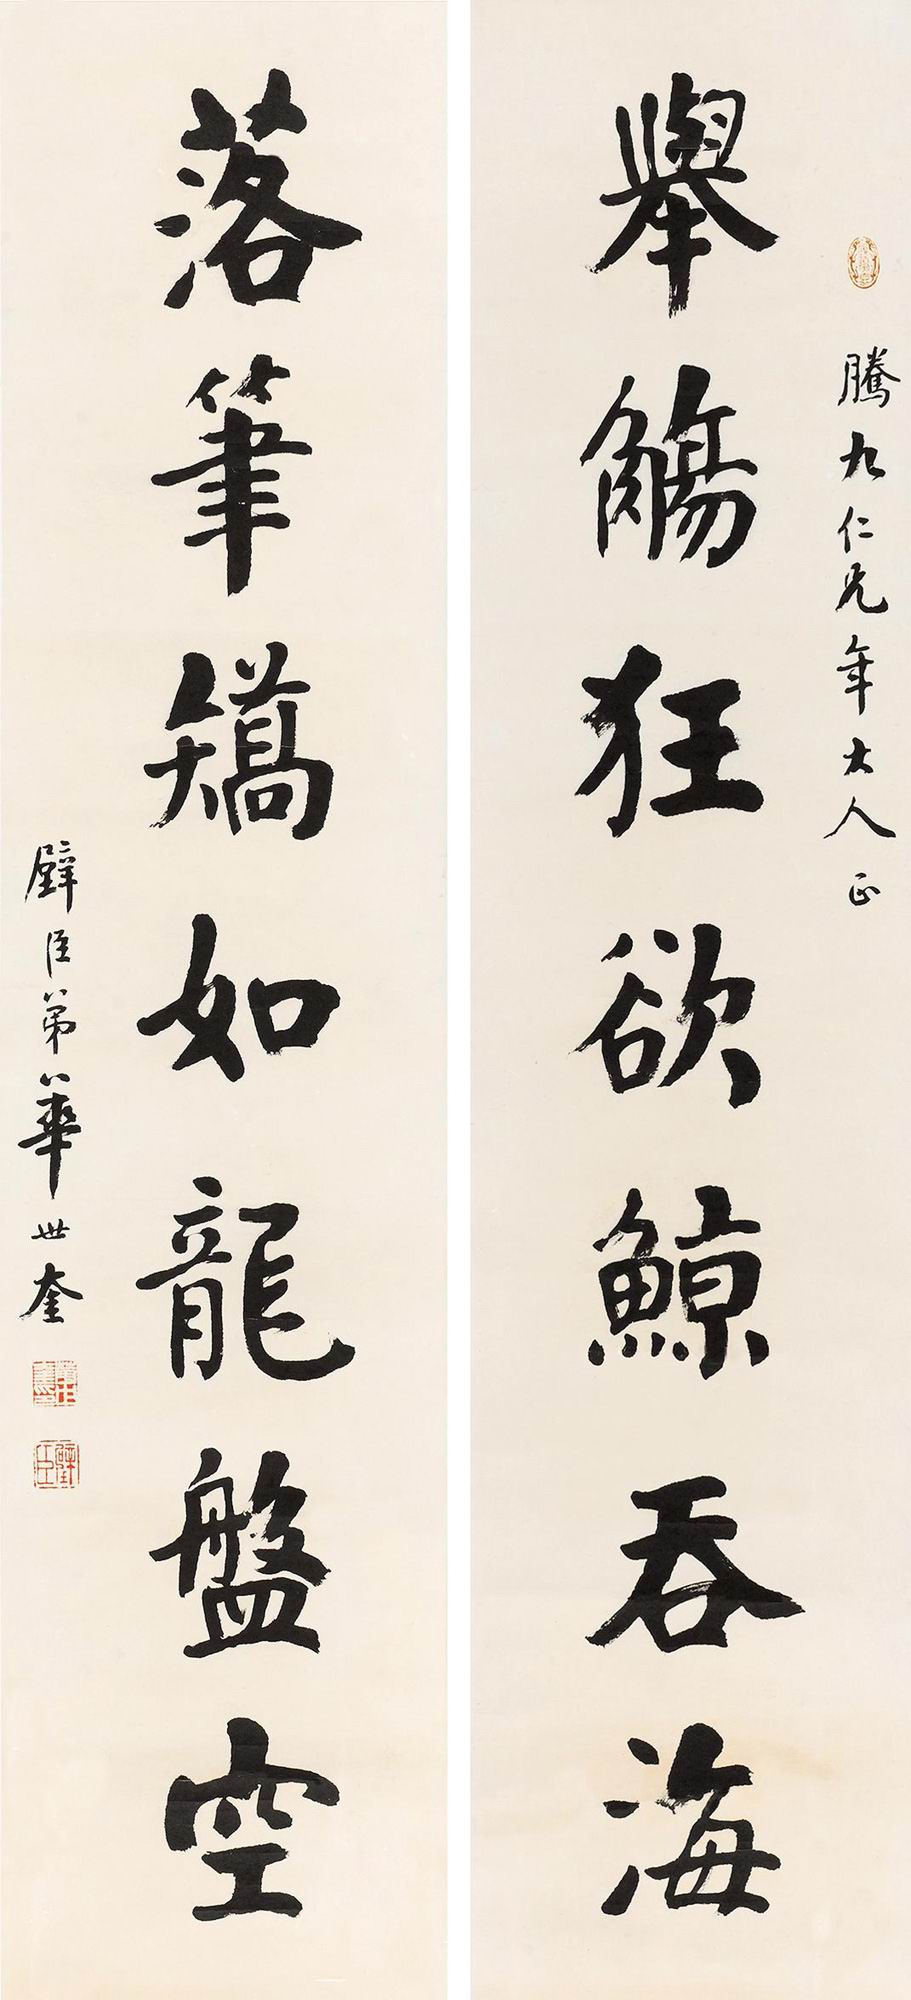 騰九仁兄年大人正
舉觴狂欲鯨吞海
落筆矯如龍盤空
璧臣弟華世奎
璧臣